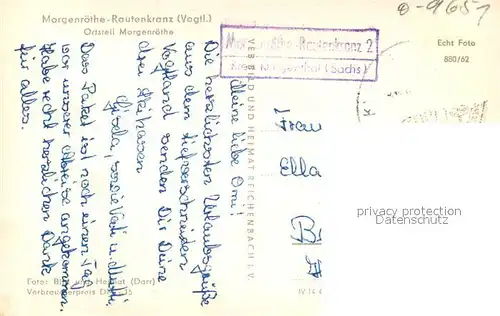 Morgenröthe-Rautenkranz (Vogtl.)
Ortsteil Morgenröthe
Meine liebe Omi!
Die herzlichsten Urlaubsgrüße
aus dem tiefverschneiten
Vogtland senden Dir Deine
drei Skihasen
Gisela, sowie Vati u. Mutti.
Das Paket ist noch einen Tag
vor unserer Abreise angekommen.
Habe recht herzlichen Dank
für alles.
Foto: Bild und Heimat (Darr)
Verbraucherpreis
VEB BILD UND HEIMAT REICHENBACH i. V.
Rautenkranz 2
Echt Foto
880/62
Frau
Ella
privacy protection
Datenschutz
IV 14